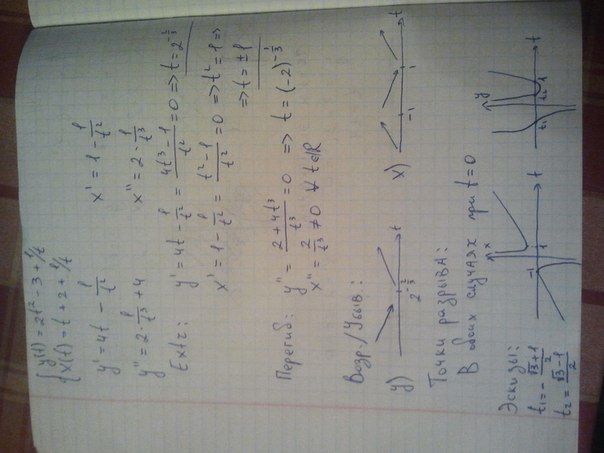 { y(t) = 2t² - 3 + 1/t
{ x(t) = t + 2 + 1/t
y' = 4t - 1/t²    x' = 1 - 1/t²
y'' = 2·1/t³ + 4    x'' = 2·1/t³
Extr: y' = 4t - 1/t² = (4t³ - 1)/t² = 0 => t = 2^(-2/3)
x' = 1 - 1/t² = (t² - 1)/t² = 0 => t² = 1 =>
=> t = ±1
Перегиб: y'' = (2 + 4t³)/t³ = 0 => t = (-2)^(-1/3)
x'' = 2/t³ ≠ 0 ∀ t∈R
Возр./Убыв:
y) 2^(-2/3) t    x) -1 1 t
Точки разрыва:
В обоих случаях при t=0
Эскизы:
t₁ = -(√3+1)/2
t₂ = (√3-1)/2
x -1 1 t    y t₁ t₂ 1 t